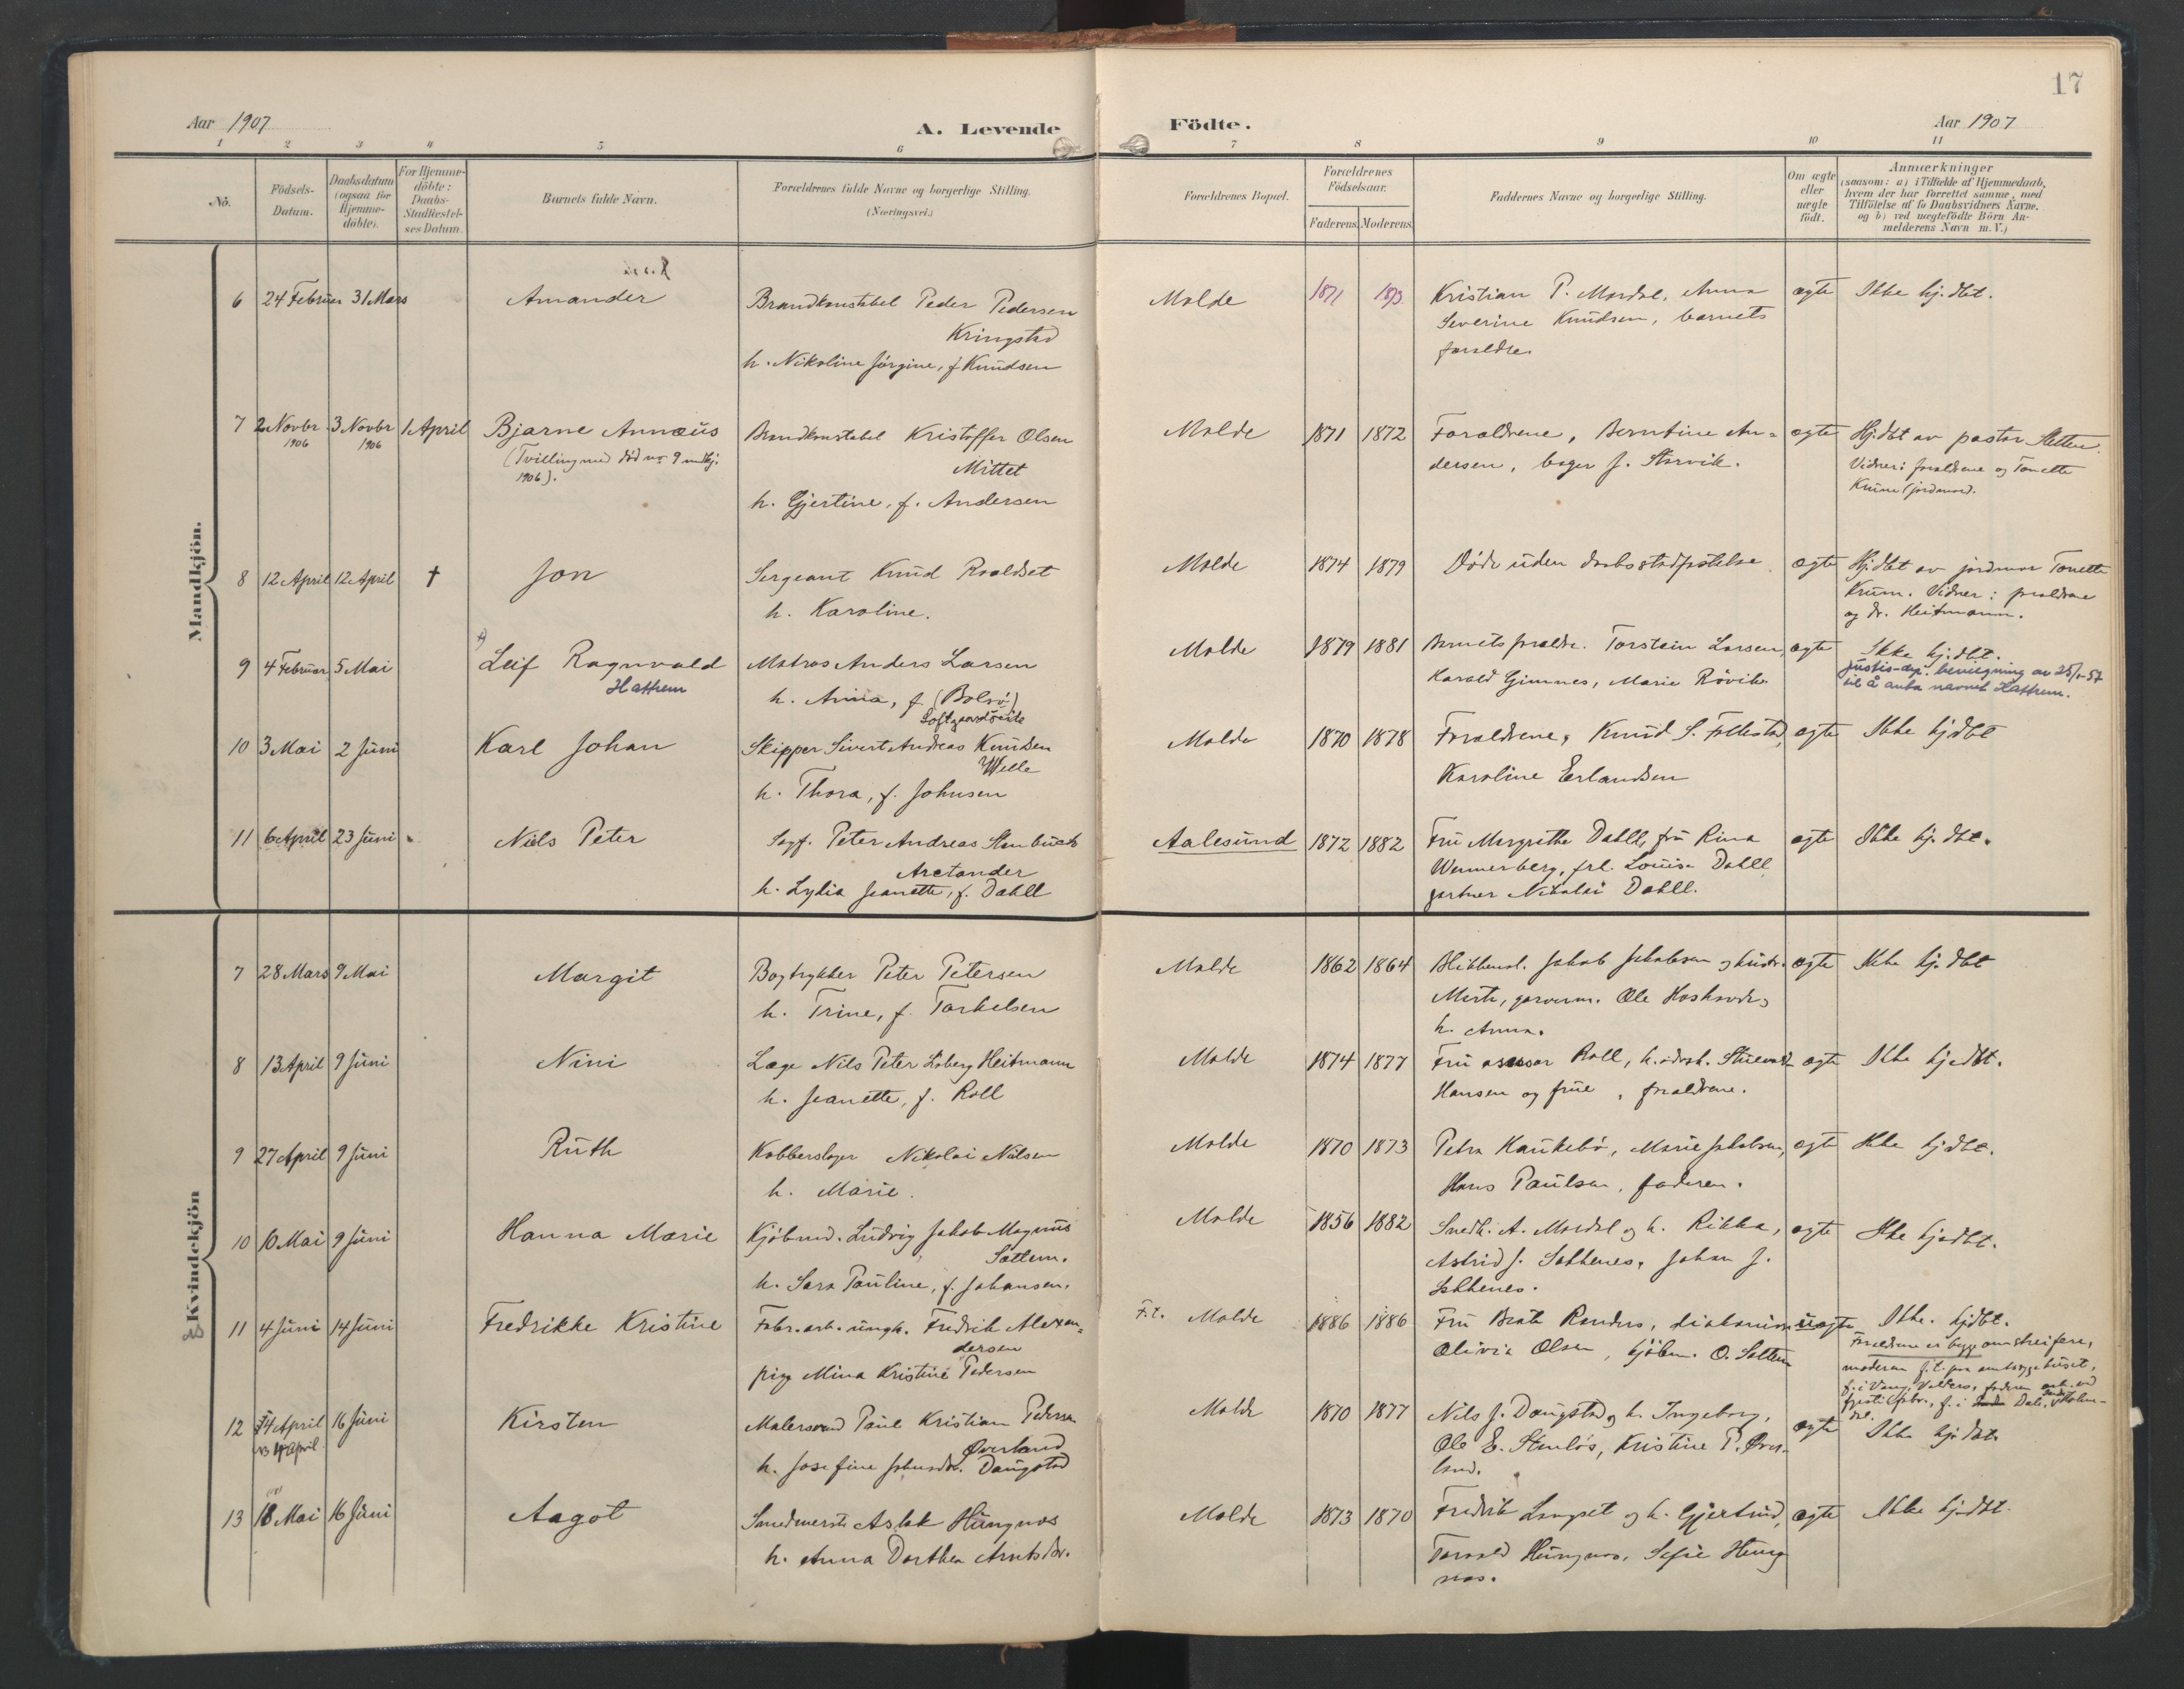 17
Aar 1907
A. Levende
Födte.
Aar 1907
1 2 3 4 5 6 7 8 9 10 11
No.
Födsels-
Datum.
Daabsdatum
(ogsaa for
Hjemme-
döbte).
For Hjemme-
döbte:
Daabs-
Stadfæstel-
ses Datum.
Barnets fulde Navn.
Forældrenes fulde Navne og borgerlige Stilling.
(Næringsvei.)
Forældrenes Bopæl.
Forældrenes
Födselsaar.
Faderens. Moderens.
Faddernes Navne og borgerlige Stilling.
Om ægte
eller
uægte
födt.
Anmærkninger
(saasom: a) i Tilfælde af Hjemmedaab,
hvem der har forrettet samme, med
Tilföielse af to Daabsvidners Navne.
og b) ved uægtefödte Börn An-
melderens Navn m. V.)
Mandkjön.
6 24 Februar 31 Mars Amander
Brandkonstabel Peder Pedersen
Kringstad
h. Nikoline Jörgine, f. Knudsen
Molde 1871 1873
Kristian P. Mordal, Anna
Severine Knudsen, barnets
foraldre.
ægte Ikke hj. dbt.
7 2 Novbr 1906 3 Novbr 1906 1 April Bjarne Annæus
(Tvilling med død nr 9 mdkj.
1906).
Brandkonstabel Kristoffer Olsen
Mittet
h. Gjertine, f. Andersen
Molde 1871 1872
Foraldrene, Berntine An-
dersen, bager J. Storvik.
ægte Hjdbt av pastor Sletten.
Vidner: foraldrene og Tonette
Krum (jordmor).
8 12 April 12 April † Jon
Sergeant Knud Roaldset
h. Karoline.
Molde 1874 1879
Døde uden daabsstadfæstelse.
ægte Hjdbt av jordmor Tonette
Krum. Vidner: foraldrene
og dr. Heitmann.
9 4 Februar 5 Mai Leif Ragnvald
Hattrem
Matros Anders Larsen
h. Anna, f. (Bolsö)
Molde 1879 1881
Barnets foraldre. Torstein Larsen,
Harald Gimnes, Marie Rövik.
ægte Ikke hj. dbt.
Justis-dep. bevilgning av
til å anta navnet Hattrem.
10 3 Mai 2 Juni Karl Johan
Skipper Sivert Andreas Knudsen
Welle
h. Thora, f. Johnsen
Molde 1870 1878
Foraldrene, Knud S.
Karoline Erlandsen
ægte Ikke hjdbt
11 6 April 23 Juni Niels Peter
Sagf. Peter Andreas Stenbuck
Arctander
h. Lydia Jeanette, f. Dahll
Aalesund 1872 1882
Fru Margrethe Dahll, fru Rina
Wennerberg, frl. Louise Dahll
gartner Nikolai Dahll.
ægte Ikke hj. dbt.
Kvindekjön
7 28 Mars 9 Mai Margit
Bogtrykker Peter Petersen
h. Trine, f. Torkelsen
Molde 1862 1864
Blikkensl. Jakob Jakobsen og hustr.
Marte, garverm. Ole
h. Anna.
ægte Ikke hj. dbt
8 13 April 9 Juni Nini
Læge Nils Peter Loberg Heitmann
h. Jeanette, f. Roll
Molde 1874 1877
Fru assessor Roll,
Hansen og frue, foraldrene.
ægte Ikke hj. dbt.
9 27 April 9 Juni Ruth
Kobberslager Nikolai Nilsen
h. Marie.
Molde 1870 1873
Petra Haukebö, Marie Jakobsen,
Hans Paulsen, faderen.
ægte Ikke hjdbt.
10 10 Mai 9 Juni Hanna Marie
Kjöbmd. Ludvig Jakob Magnus
Sættem.
h. Sara Pauline, f. Johansen.
Molde 1856 1882
Snedk. A. Mordal og h. Rikka,
Astrid J. Sathenes, Johan J.
ægte Ikke hjedbt.
11 4 Juni 14 Juni Fredrikke Kristine
Fabr. arb. ungk. Fredrik Alexan-
dersen
pige Mina Kristine Pedersen
F.t. Molde 1886 1886
Fru Beate Randers,
Olivia Olsen, kjöbm. O. Sættem
uægte Ikke. hjdbt.
Foraldrene er begge omstreifere,
moderen f.t. paa amtssygehuset,
12 14 April 16 Juni Kirsten
Malersvend Paul Kristian Pedersen
Øverland
h. Josefine Johnsdtr. Daugstad
Molde 1870 1877
Nils J. Daugstad og h. Ingeborg,
Ole E. Stenlös, Kristine P. Over-
land.
ægte Ikke hjdbt
13 18 Mai 16 Juni Aagot
Smedmester Aslak Hungnes
h. Anna Dorthea Arntsdtr.
Molde 1873 1870
Fredrik Langset og h. Gjertrud,
Torvald Hungnes, Sofie Hung
nes.
ægte Ikke hjdbt.